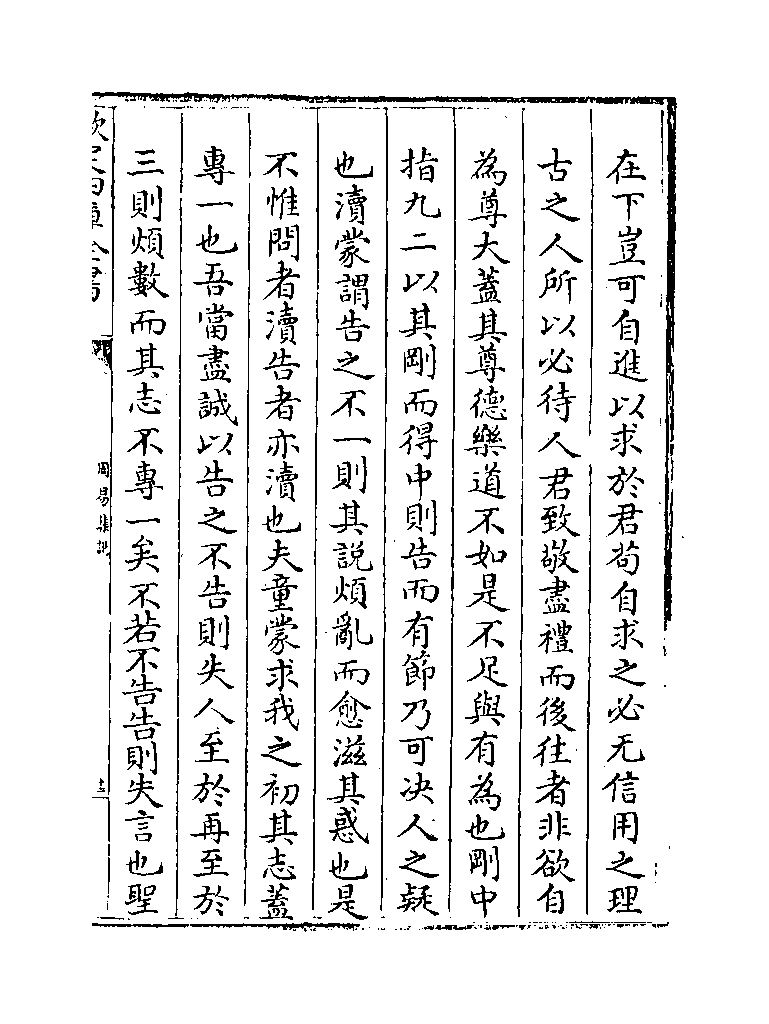 在下豈可自進以求於君茍自求之必无信用之理
古之人所以必待人君致敬盡禮而後往者非欲自
為尊大蓋其尊德樂道不如是不足與有為也剛中
指九二以其剛而得中則告而有節乃可决人之疑
也瀆蒙謂告之不一則其説煩亂而愈滋其惑也是
不惟問者瀆告者亦瀆也夫童蒙求我之初其志蓋
專一也吾當盡誠以告之不告則失人至於再至於
三則煩數而其志不專一矣不若不告告則失言也聖
欽定四庫全書
周易集説
十三